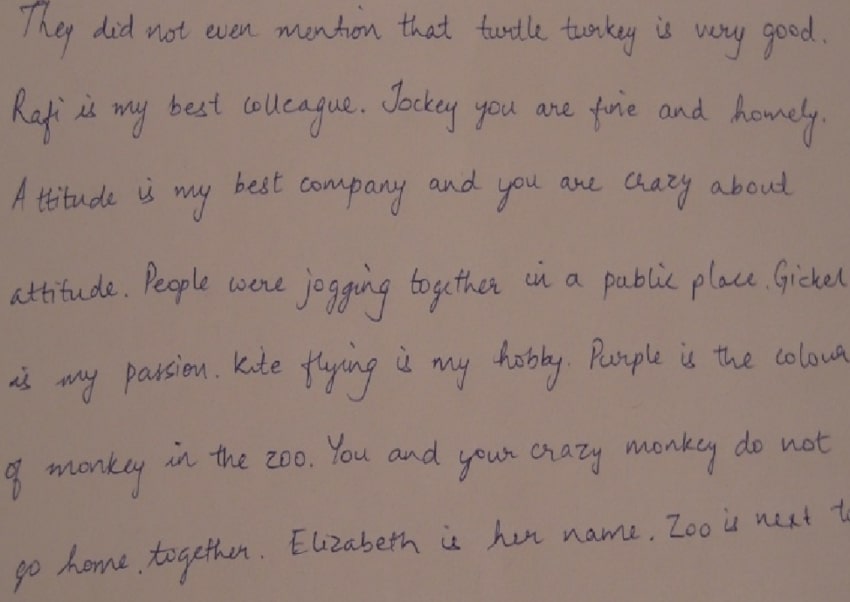 They did not even mention that turtle turkey is very good.
Rafi is my best colleague. Jockey you are fine and homely.
Attitude is my best company and you are crazy about
attitude. People were jogging together in a public place. Gickel
is my passion. Kite flying is my hobby. Purple is the colour
of monkey in the zoo. You and your crazy monkey do not
go home together. Elizabeth is her name. Zoo is next to